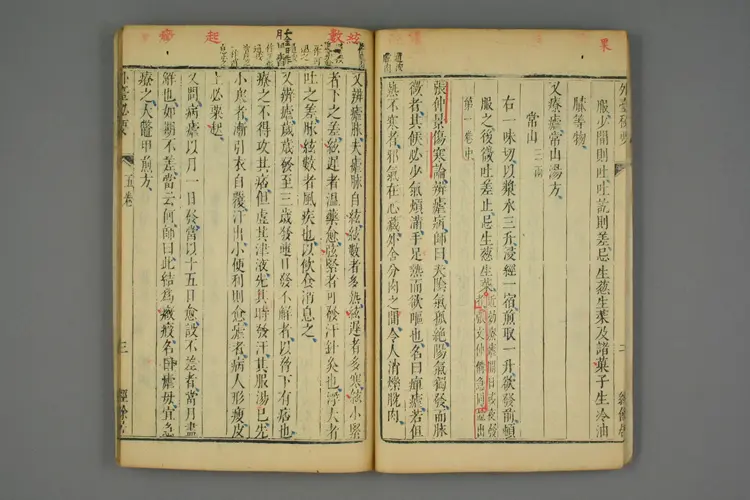 服少間則吐吐訖則差忌生葱生菜及諸菓子生冷油
膩等物
又療瘧常山湯方
常山三兩
右一味切以漿水三升浸經一宿煎取一升欲發前頓
服之後微吐差止忌生葱生菜
第一卷中
張仲景傷寒論辨瘧病師曰夫陰氣孤絕陽氣獨發而脉
微者其候必少氣煩滿手足熱而欲嘔也名曰癉瘧若但
熱不寒者邪氣在心藏外舍分肉之間令人消爍肌肉
又辨瘧脉夫瘧脉自弦弦數者多熱弦遲者多寒弦小緊
者下之差弦遲者温藥愈弦緊者可發汗針灸也浮大者
吐之差脉弦數者風疾也以飲食消息之
又辨瘧歲歲發至三歲發連日發不解者以脅下有痞也
療之不得攻其痞但虛其津液先其時發汗其服湯已先
小寒者漸引衣自覆汗出小便利則愈瘧者病人形瘦皮
上必粟起
又問病瘧以月一日發當以十五日愈設不差者當月盡
解也如期不差當云何師曰此結為癥瘕名曰瘧母宜急
療之大鼈甲煎方
外臺秘要
五卷
三
經餘居